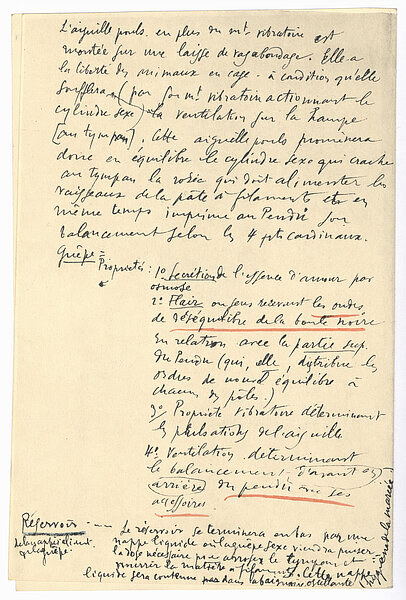 L'aiguille pouls en plus du mt. vibratoire est
montée sur une laisse de vagabondage. Elle a
la liberté des animaux en cage - à condition qu'elle
(par son mt vibratoire actionnant le
cylindre sexe) la ventilation sur la hampe
(au tympan), Cette aiguille pouls promènera
donc en équilibre le cylindre sexe qui crache
au tympan la rosée qui doit alimenter les
vaisseaux de la pâte à filaments et en
même temps imprime au Pendu son
balancement selon les 4 pts cardinaux.
Guêpe =
Propriétés : 1o Secrétion de l'essence d'amour par
osmose
2o Flair ou sens recevant les ondes
de déséquilibre de la boule noire
En relation avec la partie sup.
du Pendu (qui, elle, distribue les
ordres de nouvel équilibre à
chacun des pôles.)
3o Propriété vibratoire déterminant
les pulsations de l'aiguille
4o Ventilation déterminant
le balancement d'avant en
arrière du pendu avec ses
accessoires
Réservoir -
Le réservoir se terminera en bas par une
nappe liquide où la guêpe sexe viendra puiser
la dose nécessaire pour arroser le tympan et
nourrir la matière à filaments. Cette nappe
liquide sera contenue dans la baignoire oscillante
hygiène de la mariée